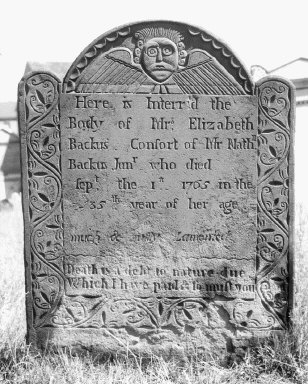 Here is Interr'd the
Body of Mrs. Elizabeth
Backus Consort of Mr. Nath
Backus Junr. who died
Sept. the 1st. 1765 in the
35th year of her age
much & justly Lamented
Death is a debt to nature due
Which I have paid & so must you